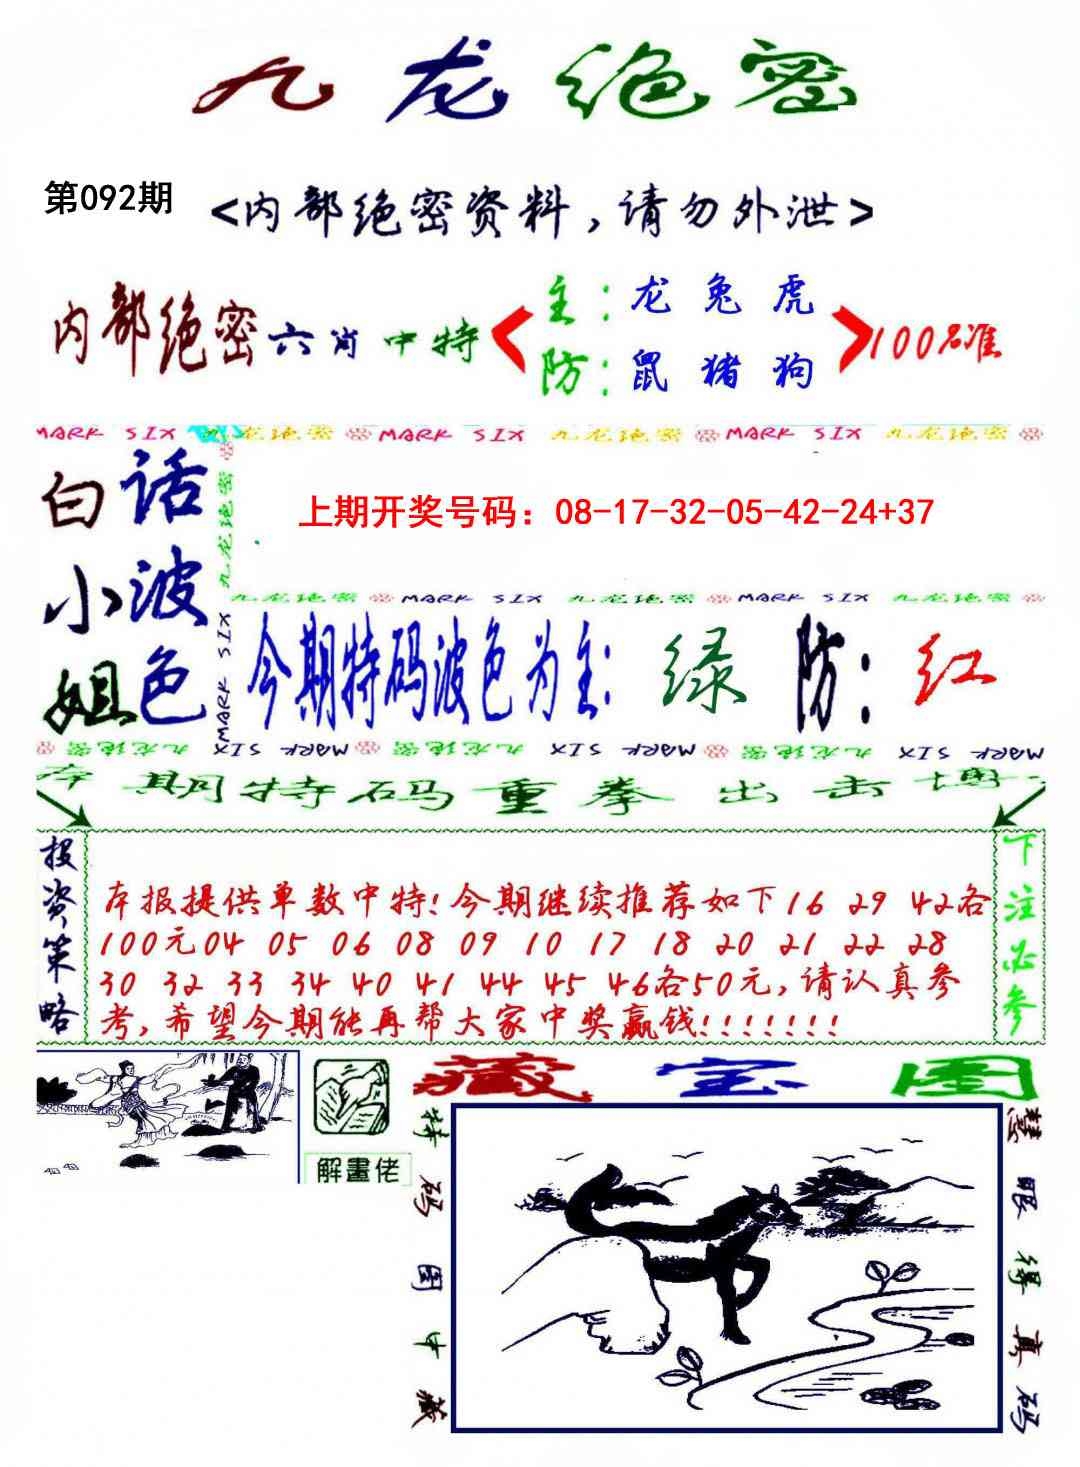 九龙绝密
第092期
<内部绝密资料，请勿外泄>
内部绝密六肖中特
主：龙 兔 虎
防：鼠 猪 狗
100%准
MARK SIX 九龙绝密 MARK SIX 九龙绝密 MARK SIX 九龙绝密
白小姐
话波色
九龙绝密
MARK SIX
上期开奖号码：08-17-32-05-42-24+37
九龙绝密 MARK SIX 九龙绝密 MARK SIX 九龙绝密
今期特码波色为主：绿 防：红
九龙绝密 MARK SIX 九龙绝密 MARK SIX 九龙绝密 MARK SIX
本期特码重拳出击博
投资策略
本报提供单数中特!今期继续推荐如下16 29 42各
100元04 05 06 08 09 10 17 18 20 21 22 28
30 32 33 34 40 41 44 45 46各50元,请认真参
考,希望今期能再帮大家中奖赢钱!!!!!!!
下注必参
解畫佬
藏宝图
特码图中藏
慧眼得真码